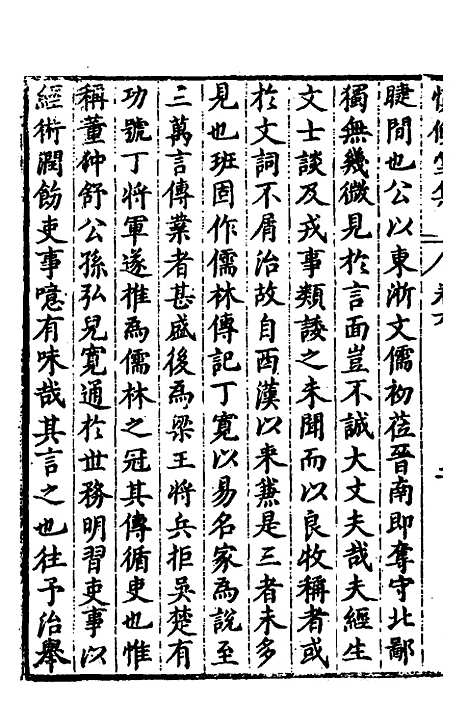 睫間也公以東浙文儒初蒞晉南即奪守北鄙
獨無幾微見於言面豈不誠大丈夫哉夫經生
文士談及戎事類諉之未聞而以良牧稱者或
於文詞不屑治故自西漢以来兼是三者未多
見也班固作儒林傳記丁寛以易名家為說至
三萬言傳業者甚盛後為梁王將兵拒吳楚有
功號丁將軍遂推為儒林之冠其傳循吏也惟
稱董仲舒公孫弘兒寛通於世務明習吏事以
經術潤飭吏事噫有味哉其言之也往予治舉